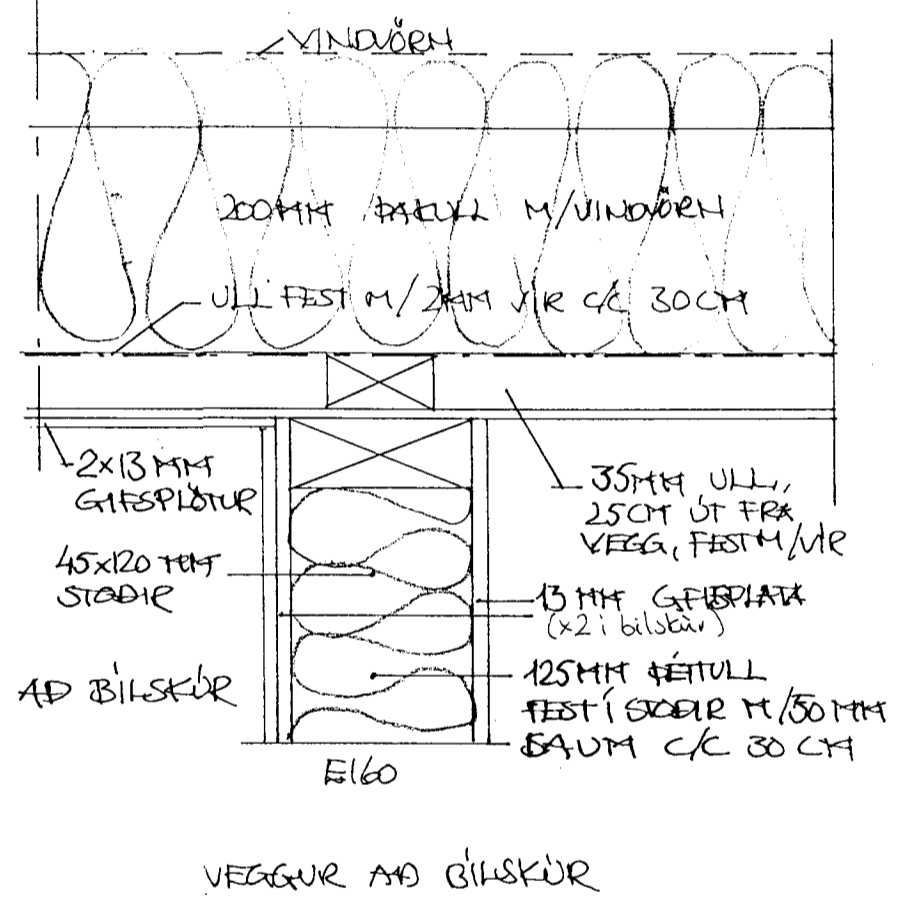 VINDVÖRN
200MM ÞAKULL M/VINDVÖRN
ULL FEST M/2MM VÍR C/C 30CM
2x13 MM
GIFSPLÖTUR
35MM ULL,
25CM ÚT FRÁ
VEGG, FEST M/VÍR
45x120 MM
STOÐIR
13 MM GIFSPLATA
(x2 í bílskúr)
AÐ BÍLSKÚR
125MM ÞÉTTULL
FEST Í STOÐIR M/50MM
SAUM C/C 30 CM
E160
VEGGUR AÐ BÍLSKÚR